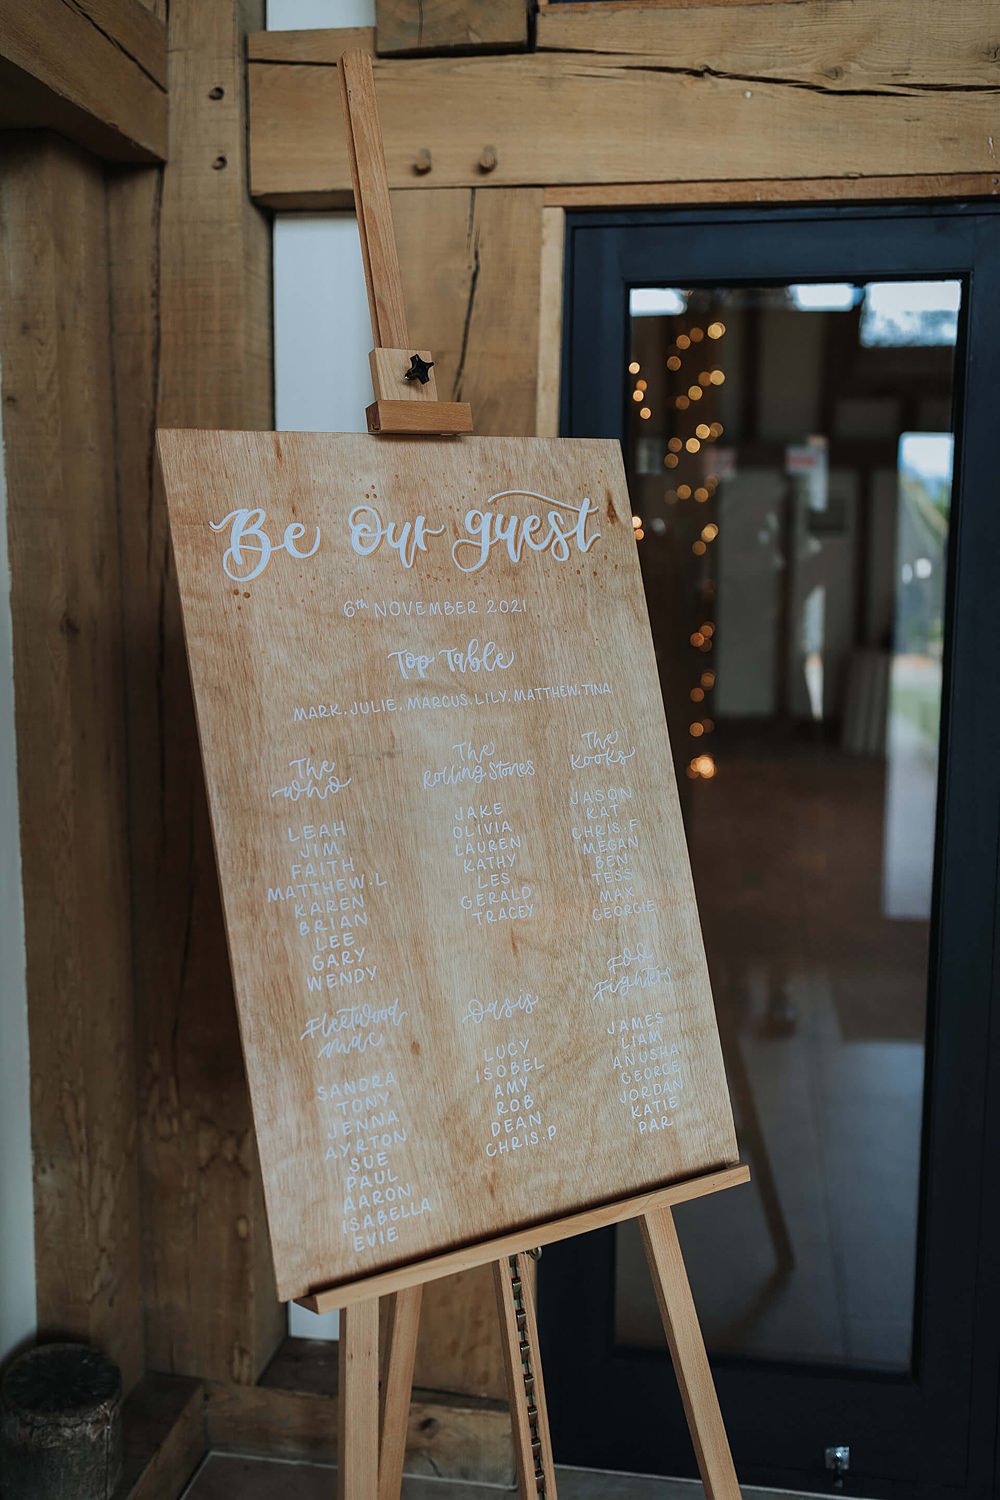 Be Our guest
6th NOVEMBER 2021
Top Table
MARK, JULIE, MARCUS, LILY, MATTHEW, TINA
The
Who
LEAH
JIM
FAITH
MATTHEW.L
KAREN
BRIAN
LEE
GARY
WENDY
The
Rolling Stones
JAKE
OLIVIA
LAUREN
KATHY
LES
GERALD
TRACEY
The
Kooks
JASON
KAT
CHRIS.F
MEGAN
BEN
TESS
MAX
GEORGIE
Fleetwood
Mac
SANDRA
TONY
JENNA
AYRTON
SUE
PAUL
AARON
ISABELLA
EVIE
Oasis
LUCY
ISOBEL
AMY
ROB
DEAN
CHRIS.P
Foo
Fighters
JAMES
LIAM
ANUSHA
GEORGE
JORDAN
KATIE
PAR